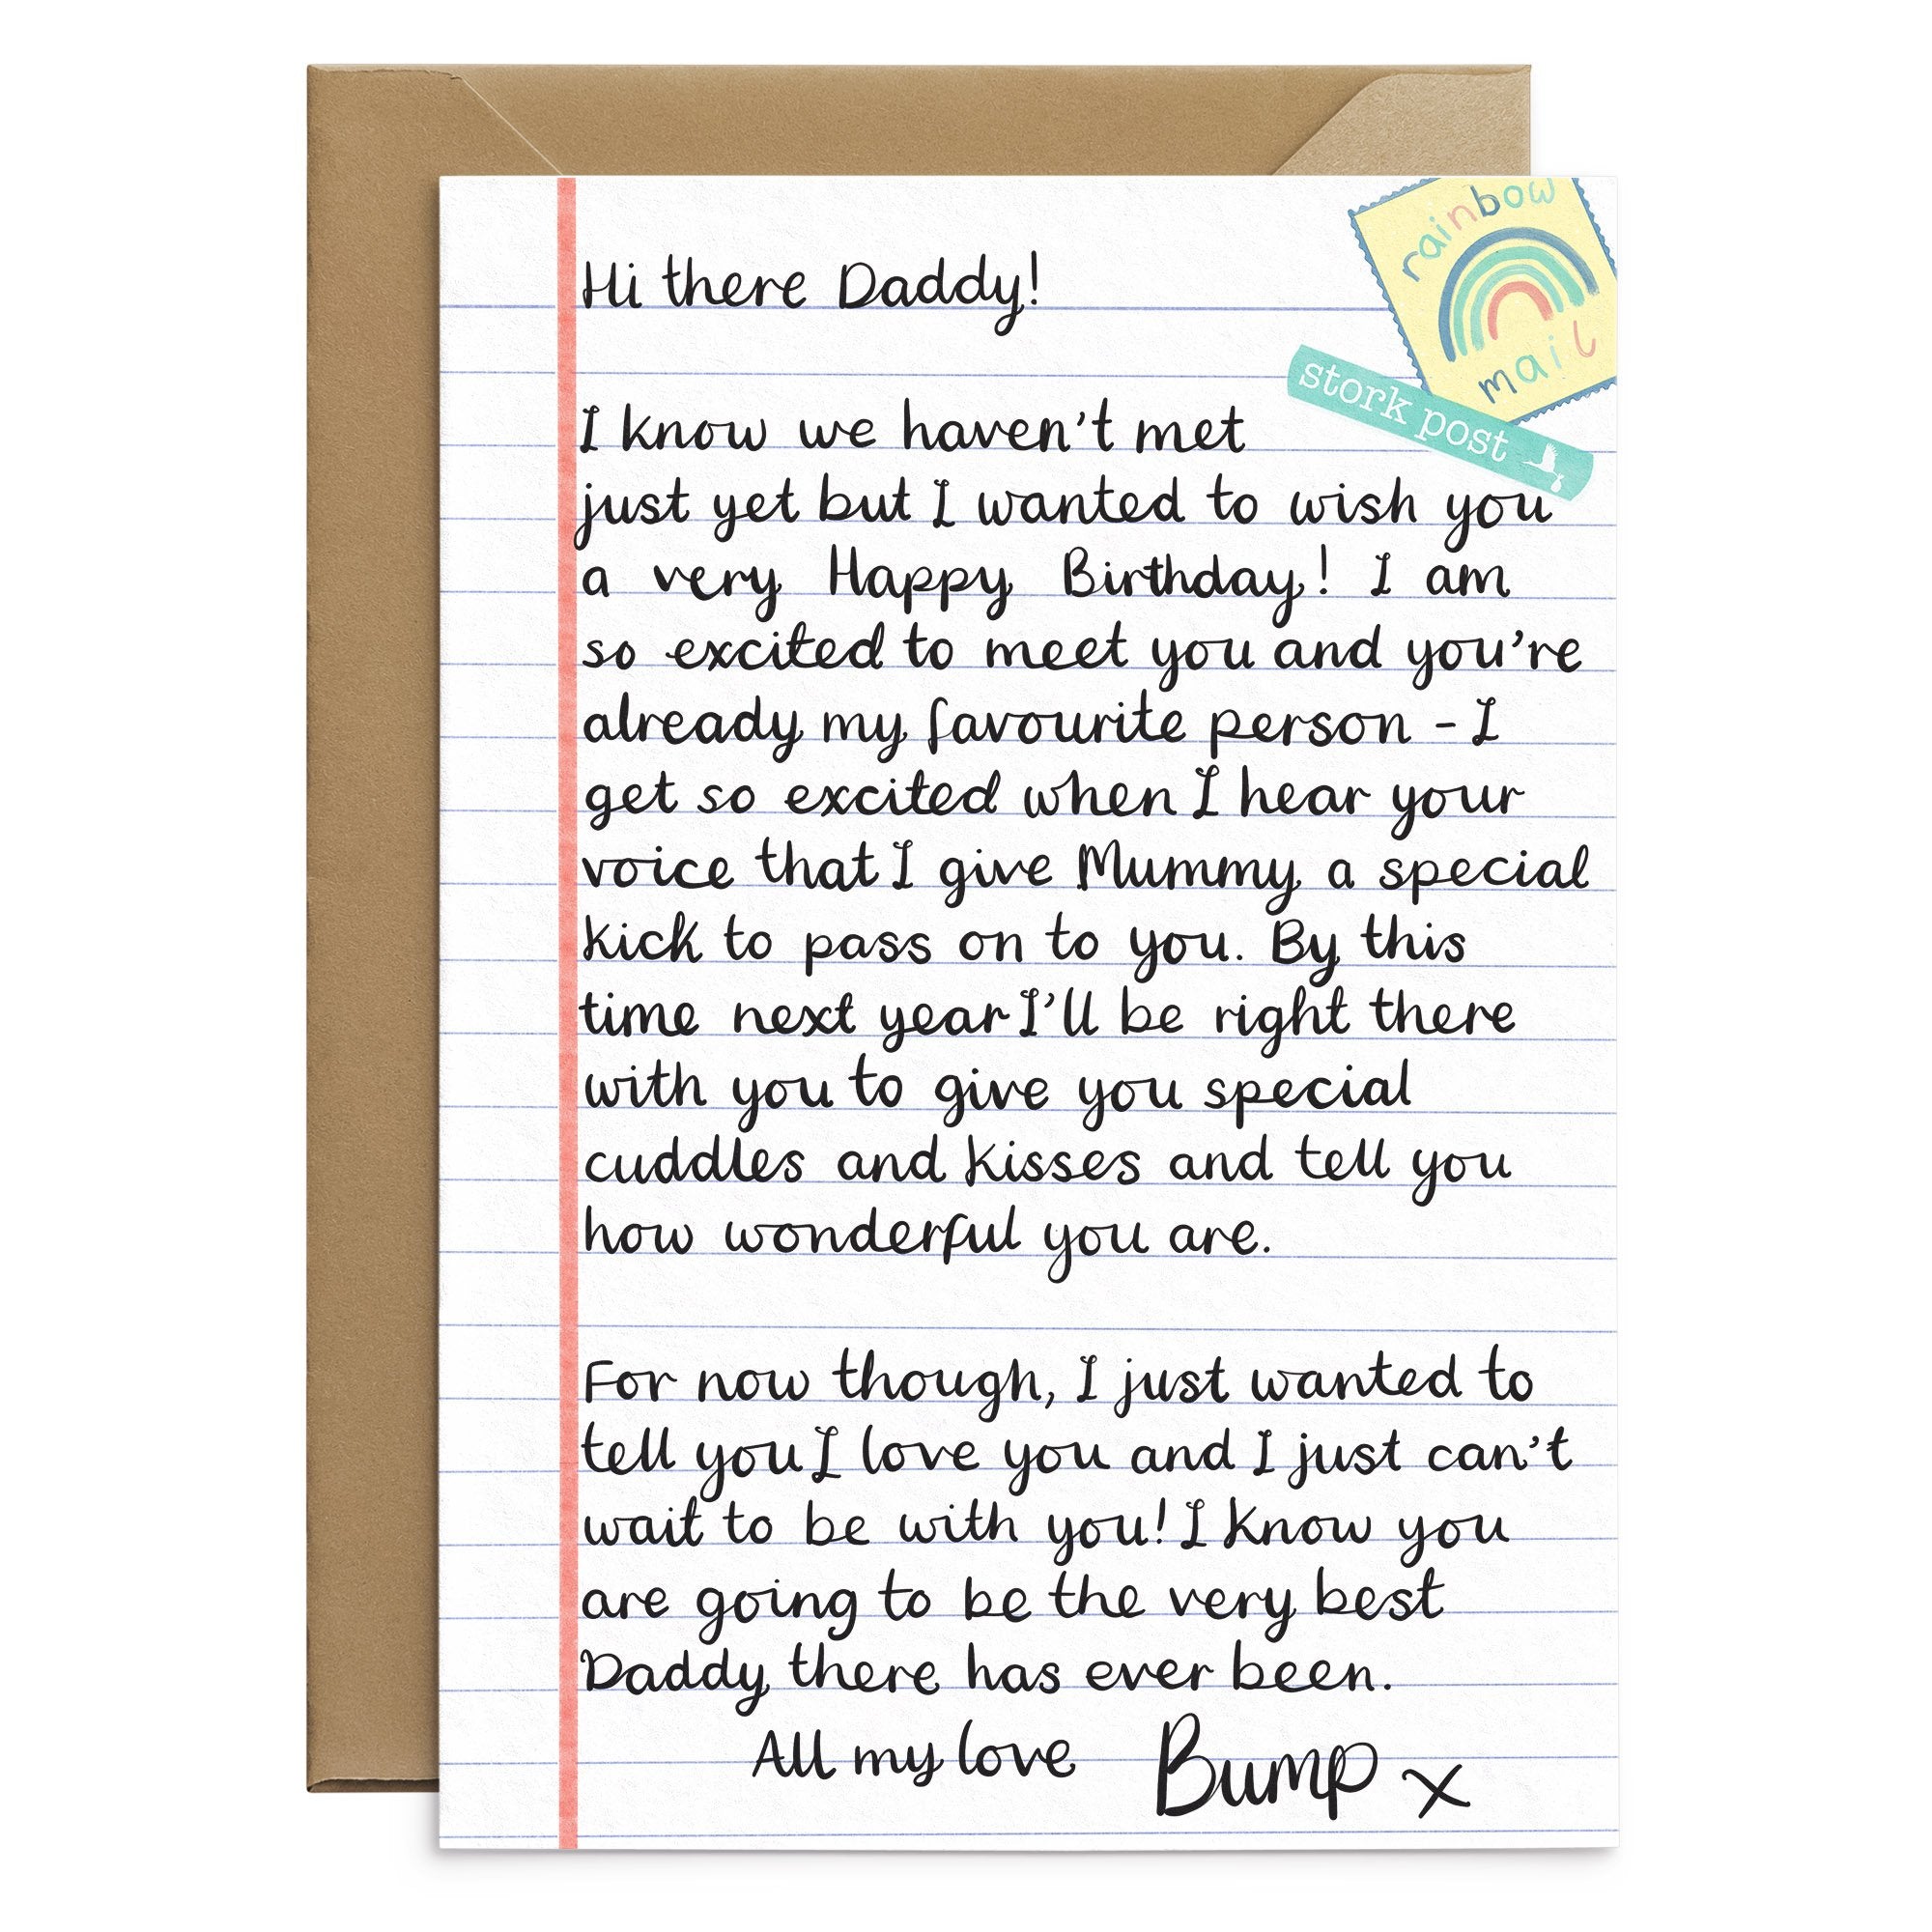 rainbow
mail
stork post
Hi there Daddy!
I know we haven't met
just yet but I wanted to wish you
a very Happy Birthday! I am
so excited to meet you and you're
already my favourite person - I
get so excited when I hear your
voice that I give Mummy a special
kick to pass on to you. By this
time next year I'll be right there
with you to give you special
cuddles and kisses and tell you
how wonderful you are.
For now though, I just wanted to
tell you I love you and I just can't
wait to be with you! I know you
are going to be the very best
Daddy there has ever been.
All my love Bump x